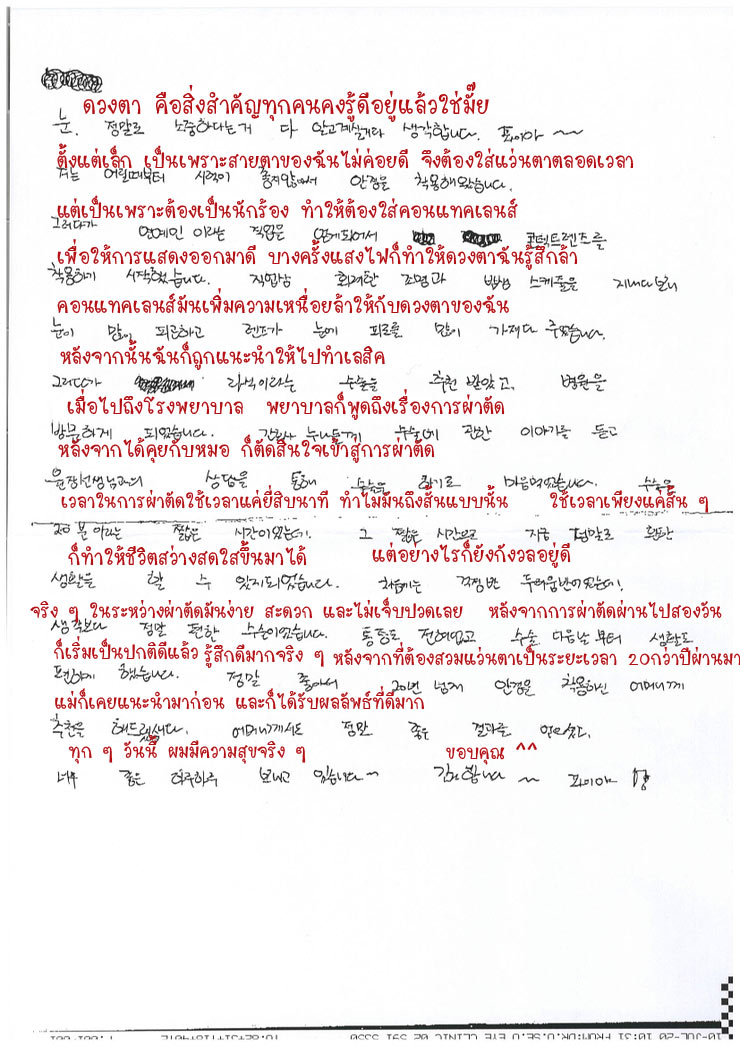 ดวงตา คือสิ่งสำคัญทุกคนคงรู้ดีอยู่แล้วใช่มั๊ย
눈. 정말로 소중하다는거 다 알고계실거라 생각합니다. 파이아 ~~
ตั้งแต่เล็ก เป็นเพราะสายตาของฉันไม่ค่อยดี จึงต้องใส่แว่นตาตลอดเวลา
저는 어릴때부터 시력이 좋지않아서 안경을 착용해왔습니다.
แต่เป็นเพราะต้องเป็นนักร้อง ทำให้ต้องใส่คอนแทคเลนส์
그러다가 연예인 이라는 직업을 갖게되어서 콘텍트렌즈를
เพื่อให้การแสดงออกมาดี บางครั้งแสงไฟก็ทำให้ดวงตาฉันรู้สึกล้า
착용하기 시작했습니다. 직업상 화려한 조명과 밤샘 스케줄을 지내다보니
คอนแทคเลนส์มันเพิ่มความเหนื่อยล้าให้กับดวงตาของฉัน
눈이 많이 피곤하고 렌즈가 눈에 피로를 많이 가져다 주었습니다.
หลังจากนั้นฉันก็ถูกแนะนำให้ไปทำเลสิค
그러다가 라식이라는 수술을 추천 받았고, 병원을
เมื่อไปถึงโรงพยาบาล พยาบาลก็พูดถึงเรื่องการผ่าตัด
방문하게 되었습니다. 간호사 누나들께 수술에 관한 이야기를 듣고
หลังจากได้คุยกับหมอ ก็ตัดสินใจเข้าสู่การผ่าตัด
원장선생님과의 상담을 통해 수술을 하기로 마음먹었습니다. 수술은
เวลาในการผ่าตัดใช้เวลาแค่ยี่สิบนาที ทำไมมันถึงสั้นแบบนั้น ใช้เวลาเพียงแค่สั้น ๆ
20분 이라는 짧은 시간이었는데. 그 짧은 시간으로 지금 정말로 환한
ก็ทำให้ชีวิตสว่างสดใสขึ้นมาได้ แต่อย่างไรก็ยังกังวลอยู่ดี
생활을 할 수 있게되었습니다. 처음에는 걱정반 두려움반이었는데!
จริง ๆ ในระหว่างผ่าตัดมันง่าย สะดวก และไม่เจ็บปวดเลย หลังจากการผ่าตัดผ่านไปสองวัน
생각보다 정말 편한 수술이었습니다. 통증도 전혀없고 수술 다음날부터 생활도
ก็เริ่มเป็นปกติดีแล้ว รู้สึกดีมากจริง ๆ หลังจากที่ต้องสวมแว่นตาเป็นระยะเวลา 20กว่าปีผ่านมา
편하게 했습니다. 정말 좋아서 20년 넘게 안경을 착용하신 어머니께
แม่ก็เคยแนะนำมาก่อน และก็ได้รับผลลัพธ์ที่ดีมาก
추천을 해드렸었다. 어머니께서도 정말 좋은 결과를 얻으셨다.
ทุก ๆ วันนี้ ผมมีความสุขจริง ๆ ขอบคุณ ^^
너무 좋은 하루하루 보내고 있습니다~ 감사합니다 ~ 파이아